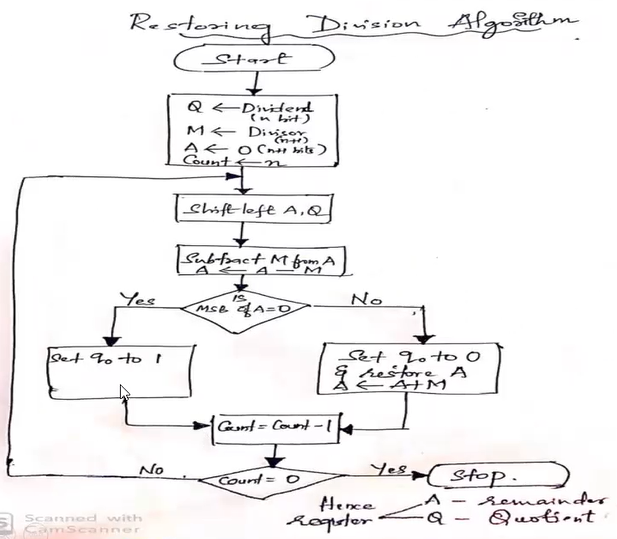 Restoring Division Algorithm
Start
Q ← Dividend
(n bit)
M ← Divisor
(n+1)
A ← 0 (n+1 bits)
Count ← n
Shift left A, Q
Subtract M from A
A ← A - M
Is
MSB of A=0
Yes
No
Set q₀ to 1
Set q₀ to 0
& restore A
A ← A+M
Count = Count - 1
Count = 0
No
Yes
Stop.
Hence
register
A - remainder
Q - Quotient
Scanned with
CamScanner